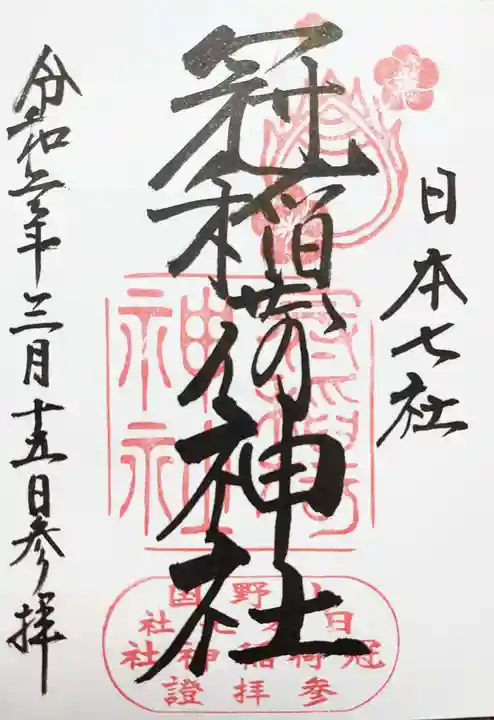 日本七社
冠稲荷神社
令和二年三月十五日参拝
冠稲荷
神社
上野国
日本七社
冠稲荷神社
参拝證